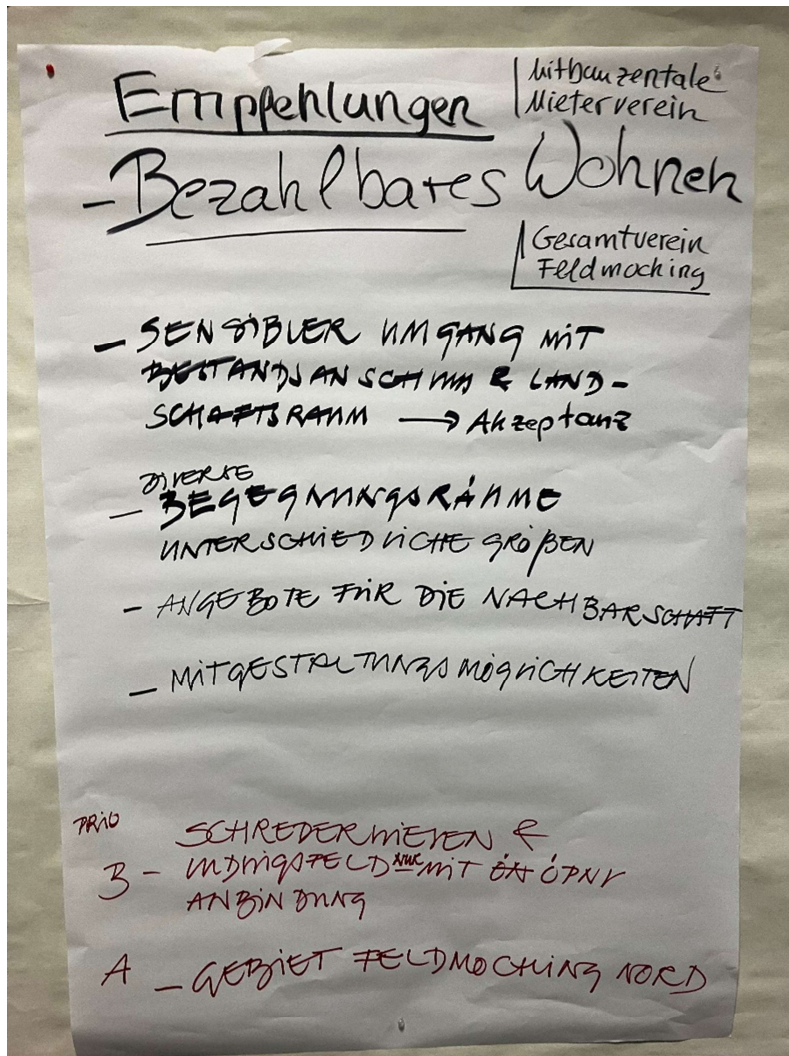 Empfehlungen
Mitbauzentale
Mieterverein
- Bezahlbares Wohnen
Gesamtverein
Feldmoching
- SENSIBLER UMGANG MIT
BESTANDSANSCHLUSS & LAND-
SCHAFTSRAUM → Akzeptanz
DIVERSE
- BEGEGNUNGSRÄUME
UNTERSCHIEDLICHE GRÖßEN
- ANGEBOTE FÜR DIE NACHBARSCHAFT
- MITGESTALTUNGSMÖGLICHKEITEN
PRIO
SCHREDERWIESEN &
B - LUDWIGSFELD NUR MIT ÖPNV
ANBINDUNG
A - GEBIET FELDMOCHING NORD